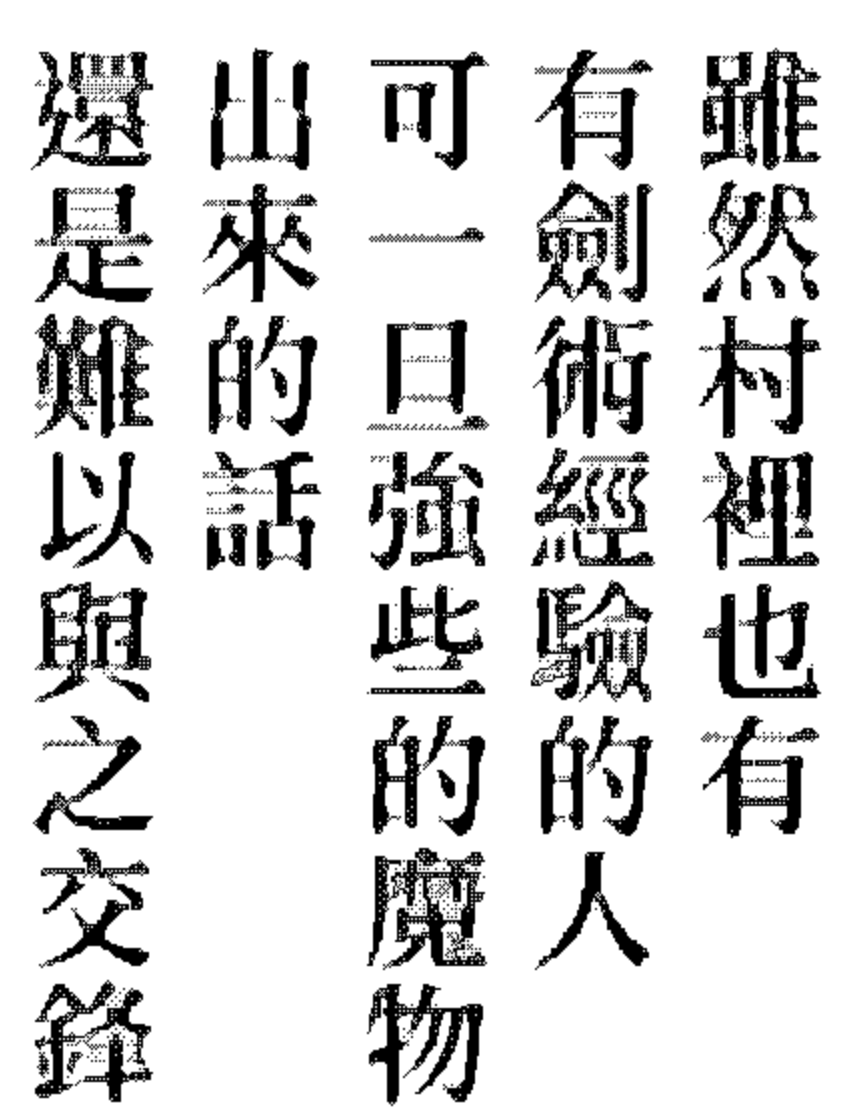 雖然村裡也有
有劍術經驗的人
可一旦強些的魔物
出來的話
還是難以與之交鋒